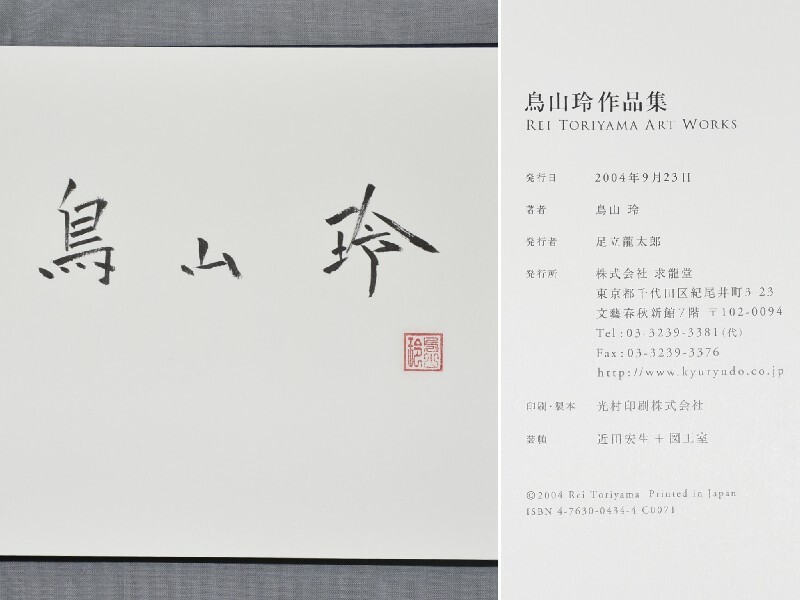 鳥山玲
鳥山玲作品集
REI TORIYAMA ART WORKS
発行日 2004年9月23日
著者 鳥山 玲
発行者 足立龍太郎
発行所 株式会社 求龍堂
東京都千代田区紀尾井町3-23
文藝春秋新館7階 〒102-0094
Tel:03-3239-3381(代)
Fax:03-3239-3376
http://www.kyuryudo.co.jp
印刷・製本 光村印刷株式会社
装幀 近田宏生+図工室
©2004 Rei Toriyama Printed in Japan
ISBN 4-7630-0434-4 C0071